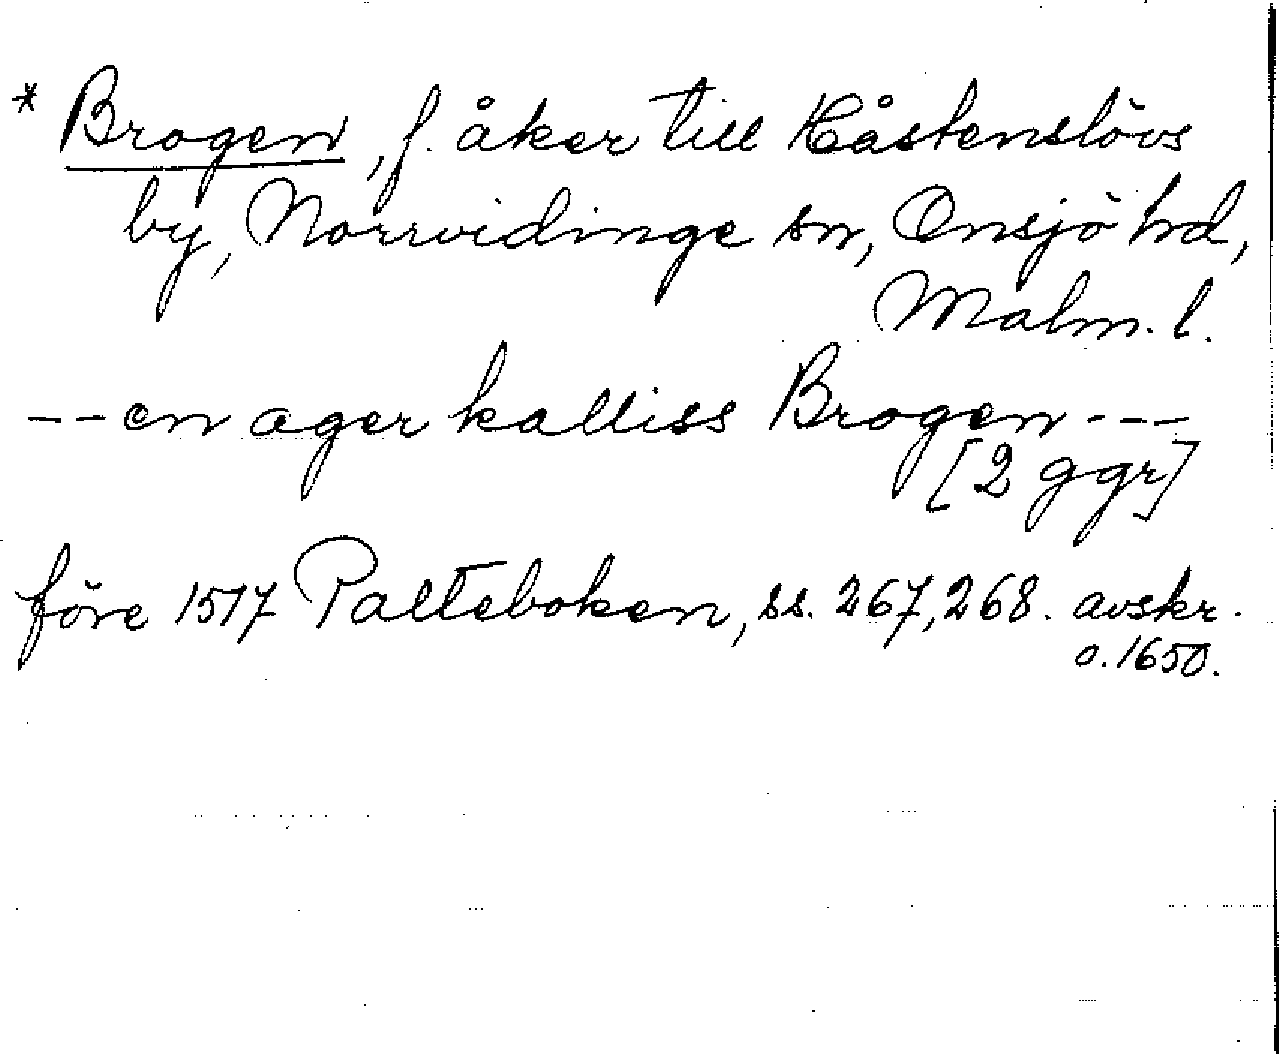 * Brogen, f. åker till Håstenslövs
by, Norrvidinge sn, Onsjö hd,
Malm. l.
-- en ager kalliss Brogen ---
[2 ggr]
före 1517 Palteboken, ss. 267, 268. avskr.
o. 1650.